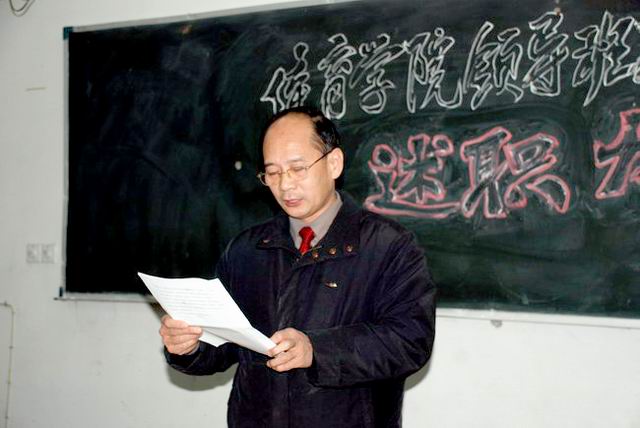 体育学院领导班
述职